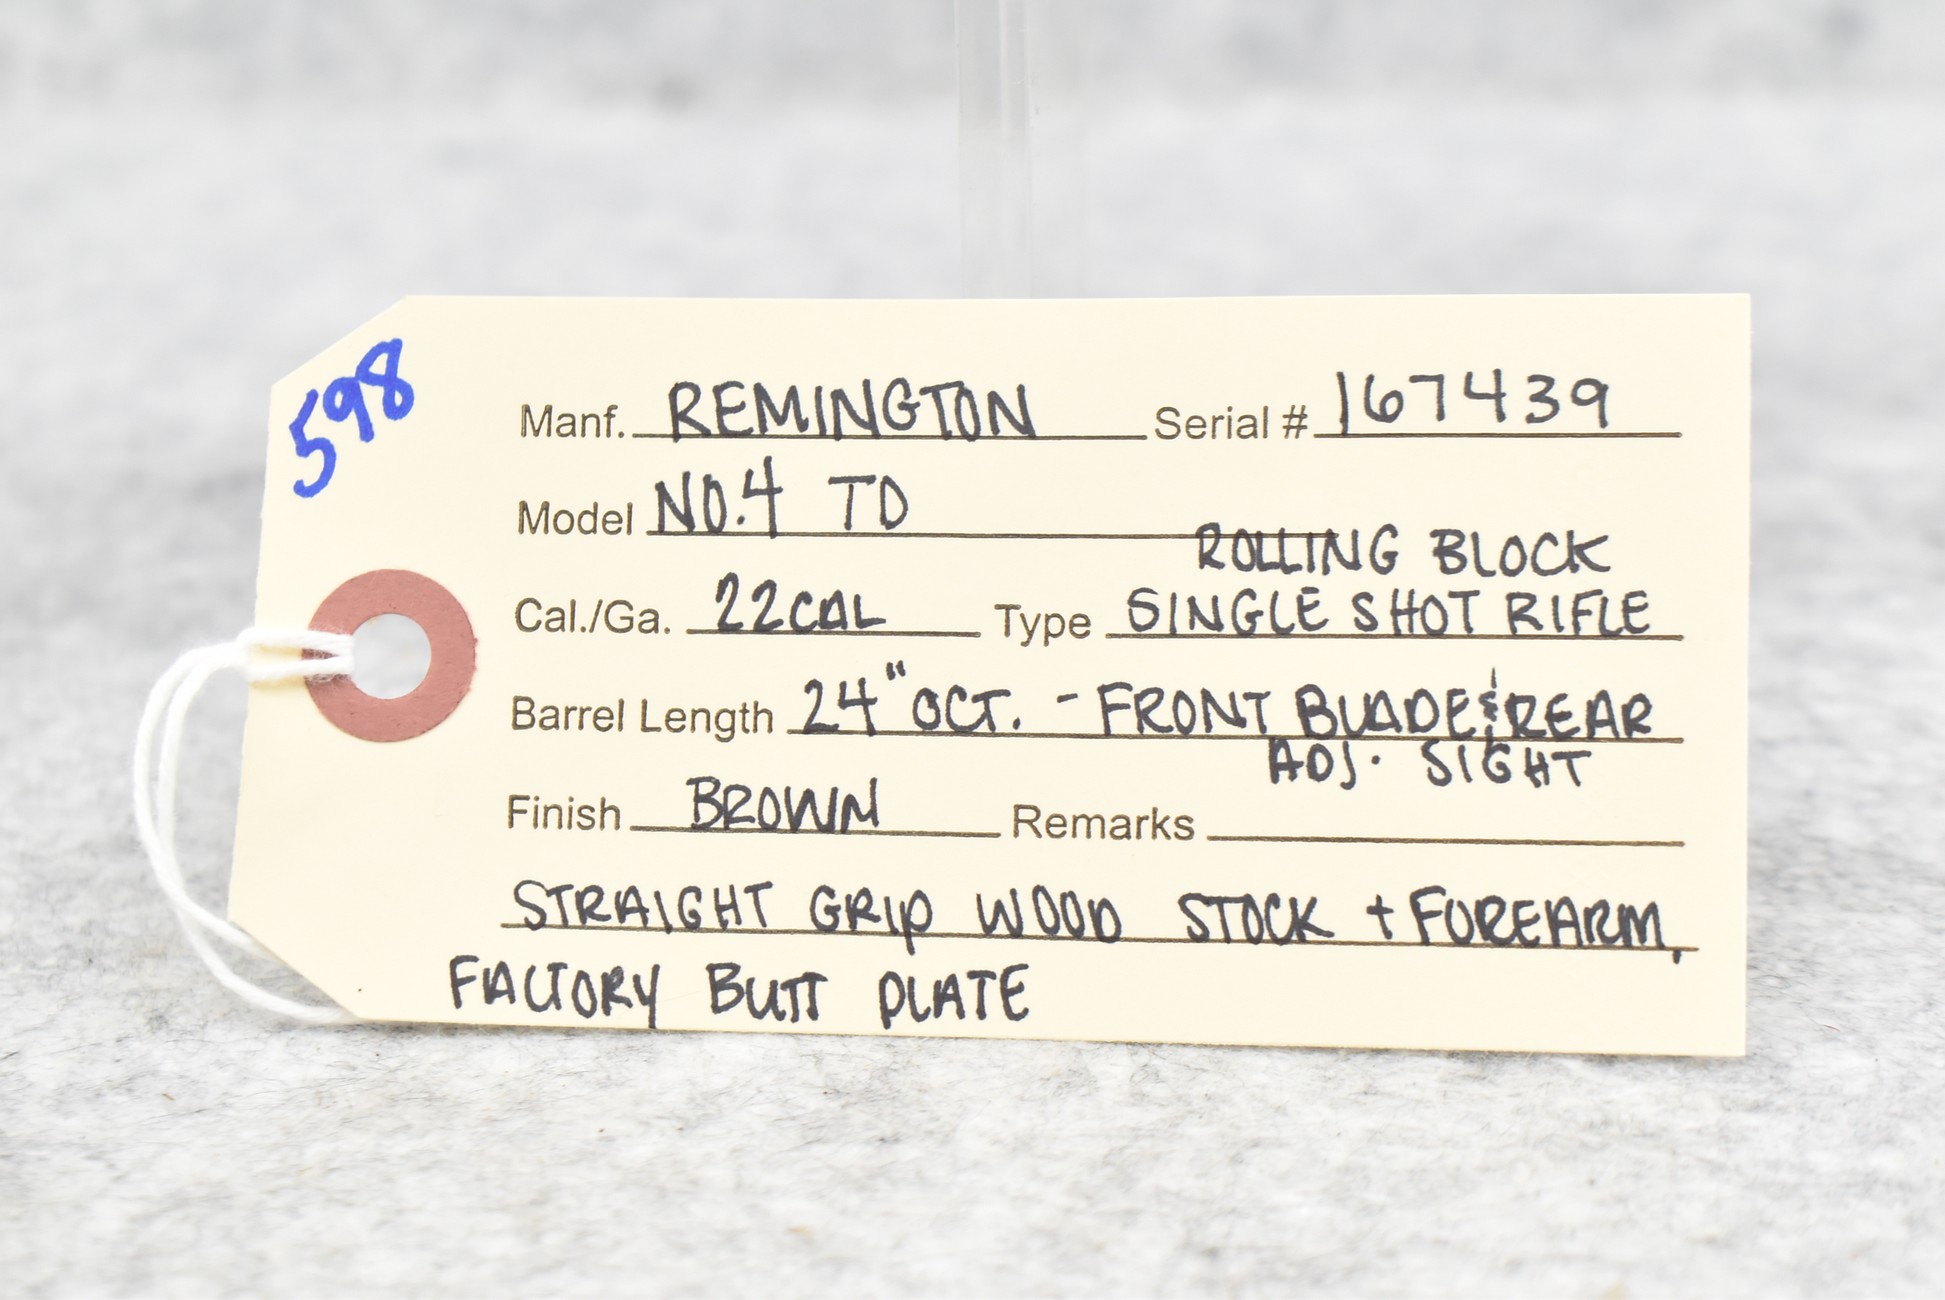 598
Manf. REMINGTON Serial # 167439
Model NO.4 TD
ROLLING BLOCK
Cal./Ga. 22CAL Type SINGLE SHOT RIFLE
Barrel Length 24" OCT. - FRONT BLADE & REAR
ADJ. SIGHT
Finish BROWN Remarks
STRAIGHT GRIP WOOD STOCK + FOREARM,
FACTORY BUTT PLATE